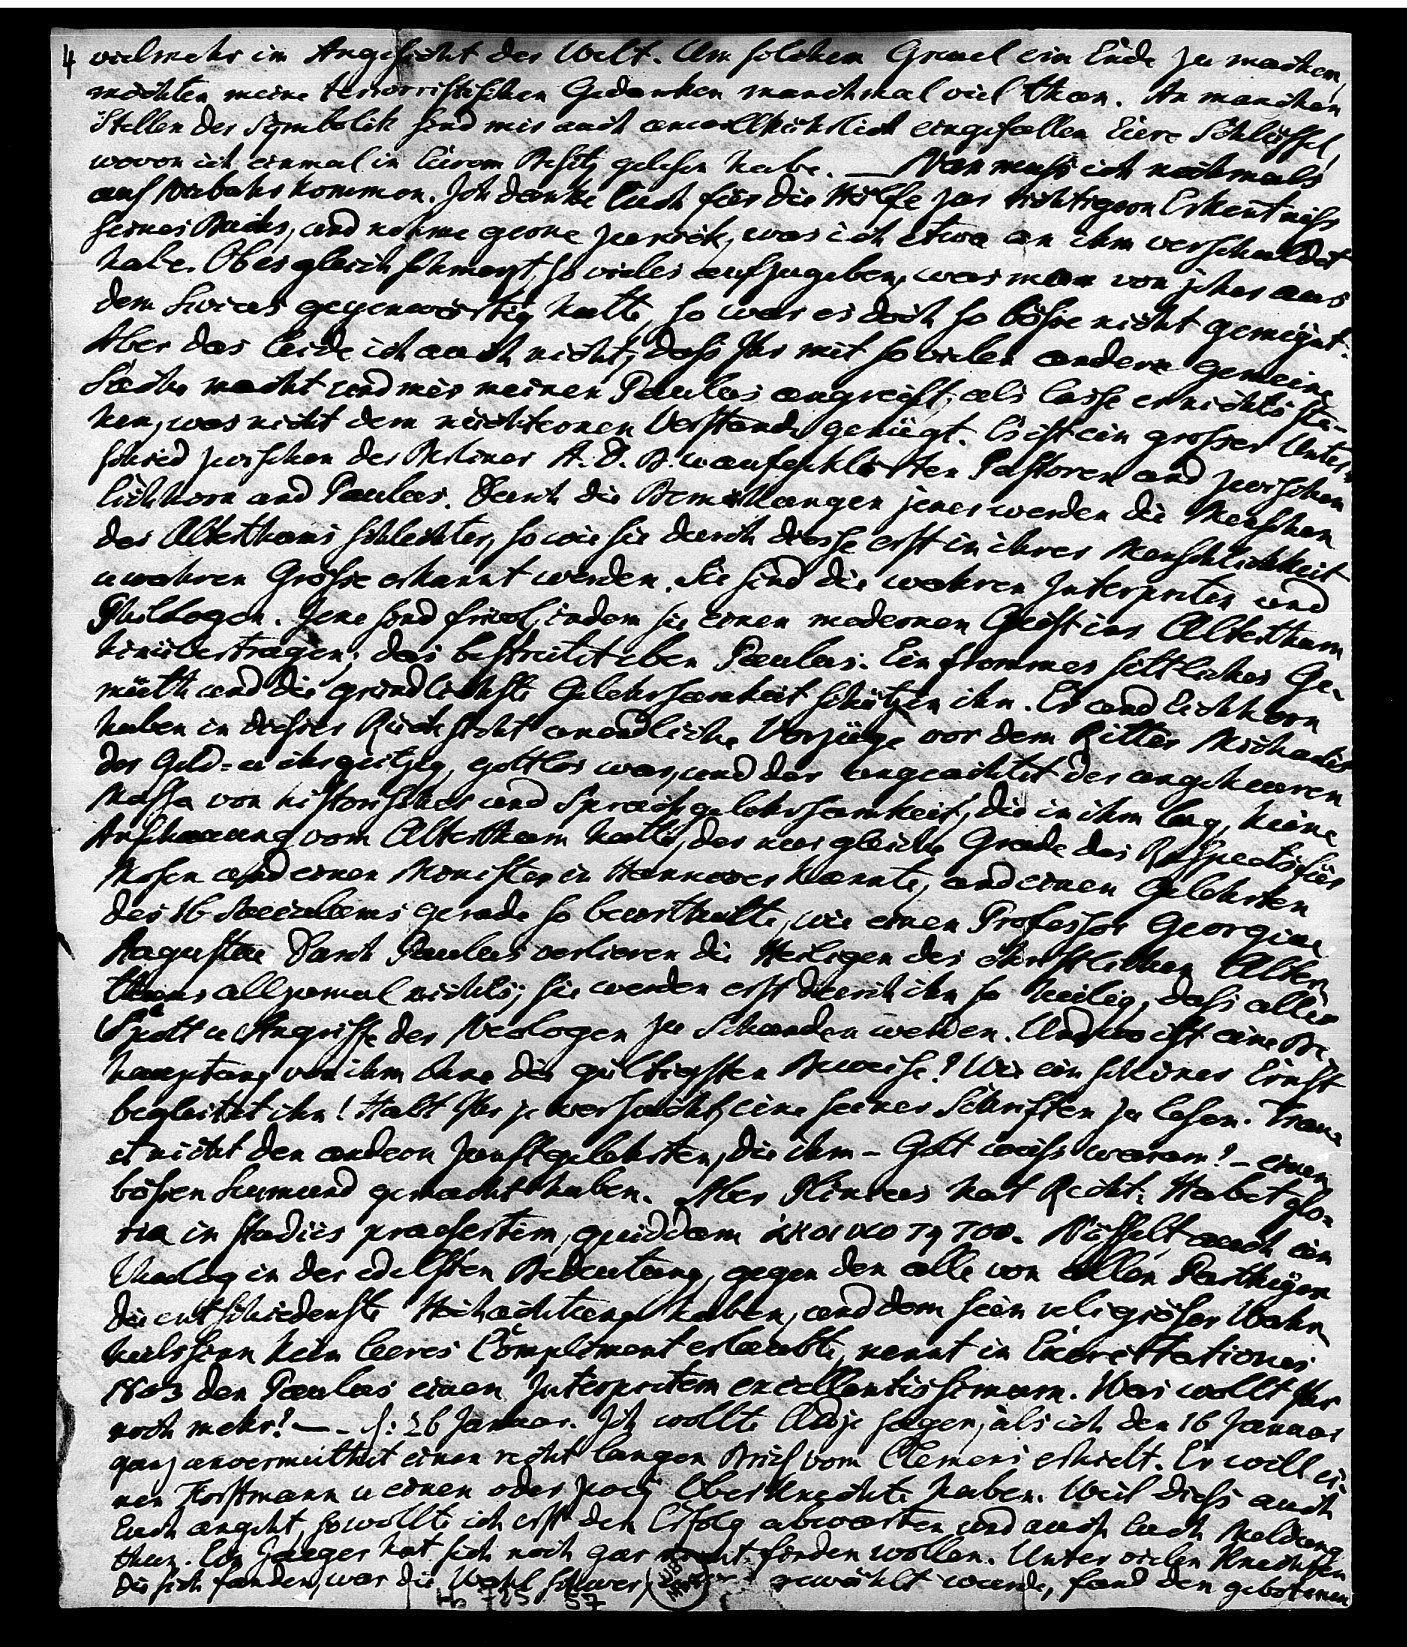 4 vielmehr im Angesicht der Welt. Um solchem Greuel ein Ende zu machen,
möchten meine terroristischen Gedanken manchmal viel thun. An manchen
Stellen der Symbolik sind mir auch unwillkührlich eingefallen Eure Schlüssel,
wovon ich einmal in Eurem Besitz gelesen habe. — Nun muss ich nochmals
auf kommen. Ich danke Euch für die Hilfe zur richtigern Erkentniss
seines , und nehme gerne zurück, was ich etwa an ihm verschuldet
habe. Ob es gleich schmerzt, so vieles aufzugeben, was man von jeher aus
dem gegenwärtig hatte, so war es doch so böse nicht gemeynt.
Aber das leide ich auch nicht, dass Ihr mit so vielen andern gemeine
Sache macht und mir meinen Paulus angreift, als lasse er nichts ste-
hen, was nicht dem nüchternen Verstande genügt. Es ist ein grosser Unter-
schied zwischen der Berliner A. D. B. u aufgeklärten Pastoren und zwischen
Eichhorn und Paulus. Durch die Bemühungen jener werden die Menschen
des Alterthums schlechter, so wie sie durch diese erst in ihrer Menschlichkeit
u wahren Grösse erkannt werden. Sie sind die wahren Interpreten und
Philologen. Jene sind frivol, indem sie einen modernen Geist ins Alterthum
hinübertragen; das bestreitet eben Paulus. Ein frommes sittliches Ge-
müth und die gründlichste Gelehrsamkeit schützen ihn. Er und Eichhorn
haben in dieser Rücksicht unendliche Vorzüge vor dem Ritter Michaelis
der Geld- u ehrgeitzig, gottlos war, und der ungeachtet der ungeheuren
Massa von historischer und Sprachgelehrsamkeit, die in ihm lag, keine
Anschauung vom Alterthum hatte, der nur gleiche Grade des Respects für
Mosen und einen Minister in Hannover kannte, und einen Gelehrten
des 16 Saeculums gerade so beurtheilte, wie einen Professor Georgiae
Augustae. Durch Paulus verlieren die Heiligen des christlichen Alter-
thums allzumal nichts; sie werden erst durch ihn so heilig, dass aller
Spott u Angriffe der Neologen zu Schanden werden. Und wo ist eine Be-
hauptung von ihm ohne die gültigsten Beweise? Wie ein schöner Ernst
begleitet ihn! Habt Ihr je versucht, eine seiner Schriften zu lesen. Trau-
et nicht den andern Zunftgelehrten, die ihm – Gott weiss warum? – einen
bösen Leumund gemacht haben. Aber Plinius hat Recht: Habet glo-
ria in studiis praesertim, quiddam ἀκοινωνητον. Nösselt, auch ein
Theolog in der edelsten Bedeutung, gegen den alle von allen Partheyen
die entschiedenste Hochachtung haben, und dem sein religiöser Wahr-
heitssinn kein leeres Compliment erlaubte, nennt in Exercitationes
1803 den Paulus einen Interpretem excellentissimum. Was wollt Ihr
noch mehr? — 26 Januar. Ich wollte Adje sagen, als ich den 16 Januar
ganz unvermuthet einen recht langen Brief vom Clemens erhielt. Er will ei-
nen Forstmann u einen oder zwey Oberknechte haben. Weil diess auch
Euch angeht, so wollte ich erst den Erfolg abwarten und auch Euch Meldung
thun. Ein Jaeger hat sich noch gar nicht finden wollen. Unter vielen Knechten
die sich fanden, war die Wahl schwer, gewählt wurde, fand den gebotenen
Hs 725 57